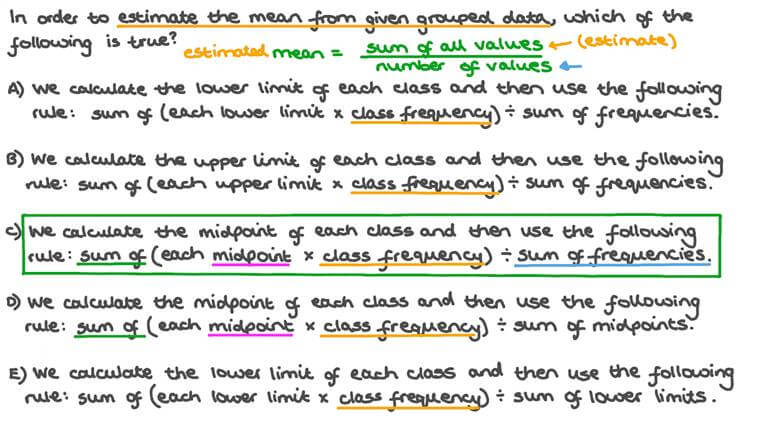 In order to estimate the mean from given grouped data, which of the
following is true?
estimated mean = sum of all values ← (estimate)
number of values ←
A) We calculate the lower limit of each class and then use the following
rule: sum of (each lower limit × class frequency) ÷ sum of frequencies.
B) We calculate the upper limit of each class and then use the following
rule: sum of (each upper limit × class frequency) ÷ sum of frequencies.
C) We calculate the midpoint of each class and then use the following
rule: sum of (each midpoint × class frequency) ÷ sum of frequencies.
D) We calculate the midpoint of each class and then use the following
rule: sum of (each midpoint × class frequency) ÷ sum of midpoints.
E) We calculate the lower limit of each class and then use the following
rule: sum of (each lower limit × class frequency) ÷ sum of lower limits.